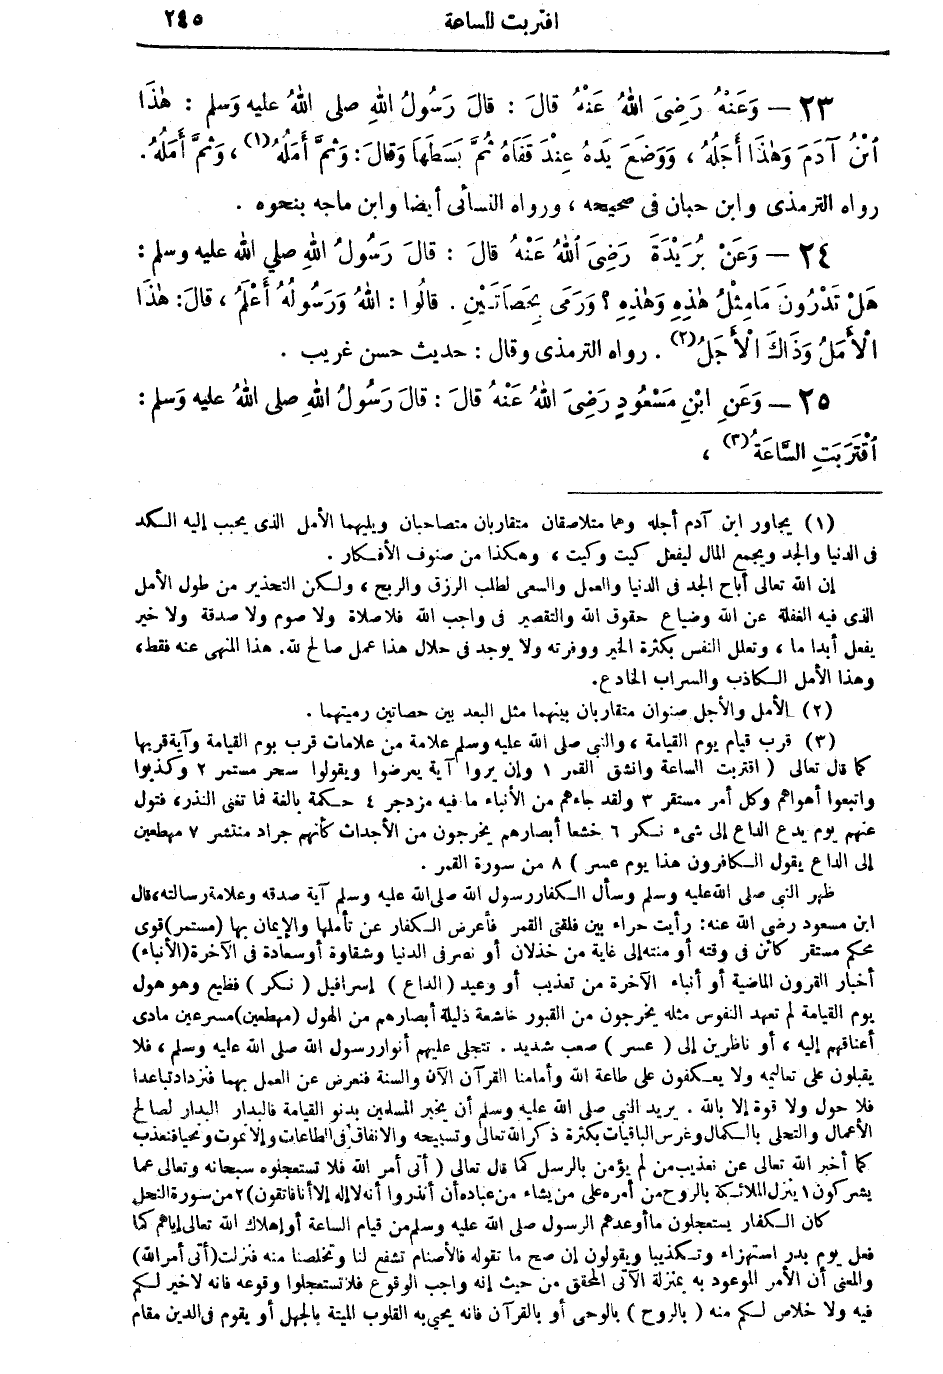 اقتربت الساعة ٢٤٥
٢٣ — وَعَنْهُ رَضِىَ اللهُ عَنْهُ قالَ : قالَ رَسُولُ اللهِ صلى اللهُ عليه وَسلم : هٰذَا
ٱبْنُ آدَمَ وَهٰذَا أَجَلُهُ ، وَوَضَعَ يَدَهُ عِنْدَ قَفَاهُ ثُمَّ بَسَطَهَا وَقالَ : وَثَمَّ أَمَلُهُ(١) ، وَثَمَّ أَمَلُهُ .
رواه الترمذى وابن حبان فى صحيحه ، ورواه النسائى أيضا وابن ماجه بنحوه .
٢٤ — وَعَنْ بُرَيْدَةَ رَضِىَ ٱللهُ عَنْهُ قالَ : قالَ رَسُولُ اللهِ صلي الله عليه وسلم :
هَلْ تَدْرُونَ مَا مِثْلُ هٰذِهِ وَهٰذِهِ ؟ وَرَمَى بِحَصَاتَيْنِ . قالُوا : اللهُ وَرَسُولُهُ أَعْلَمُ ، قالَ : هٰذَا
الْأَمَلُ وَذَاكَ الْأَجَلُ(٢) . رواه الترمذى وقال : حديث حسن غريب .
٢٥ — وَعَنِ ابْنِ مَسْعُودٍ رَضِىَ اللهُ عَنْهُ قالَ : قالَ رَسُولُ اللهِ صلى اللهُ عليه وَسلم :
ٱقْتَرَبَتِ السَّاعَةُ(٣) ،
(١) يجاور ابن آدم أجله وهما متلاصقان متقاربان متصاحبان ويليهما الأمل الذى يحبب إليه الكد
فى الدنيا والجد ويجمع المال ليفعل كيت وكيت ، وهكذا من صنوف الأفكار .
إن الله تعالى أباح الجد فى الدنيا والعمل والسعى لطلب الرزق والربح ، ولكن التحذير من طول الأمل
الذى فيه الغفلة عن الله وضياع حقوق الله والتقصير فى واجب الله فلا صلاة ولا صوم ولا صدقة ولا خير
يفعل أبدا ما ، وتعلل النفس بكثرة الخير ووفرته ولا يوجد فى خلال هذا عمل صالح لله. هذا المنهى عنه فقط،
وهذا الأمل الكاذب والسراب الخادع.
(٢) الأمل والأجل صنوان متقاربان بينهما مثل البعد بين حصاتين رميتهما .
(٣) قرب قيام يوم القيامة ، والنبي صلى الله عليه وسلم علامة من علامات قرب يوم القيامة وآية قربها
كما قال تعالى ( اقتربت الساعة وانشق القمر ١ وإن يروا آية يعرضوا ويقولوا سحر مستمر ٢ وكذبوا
واتبعوا أهواهم وكل أمر مستقر ٣ ولقد جاءهم من الأنباء ما فيه مزدجر ٤ حكمة بالغة فما تغنى النذر، فتول
عنهم يوم يدع الداع إلى شىء نكر ٦ خشعا أبصارهم يخرجون من الأجداث كأنهم جراد منتشر ٧ مهطعين
إلى الداع يقول الكافرون هذا يوم عسر ) ٨ من سورة القمر .
ظهر النبي صلى الله عليه وسلم وسأل الكفار رسول الله صلى الله عليه وسلم آية صدقه وعلامة رسالته، قال
ابن مسعود رضي الله عنه: رأيت حراء بين فلقتى القمر فأعرض الكفار عن تأملها والإيمان بها (مستمر) قوى
محكم مستقر كائن فى وقته أو منته إلى غاية من خذلان أو نصر فى الدنيا وشقاوة أو سعادة فى الآخرة (الأنباء)
أخبار القرون الماضية أو أنباء الآخرة من تعذيب أو وعيد (الداع ) إسرافيل ( نكر ) فظيع وهو هول
يوم القيامة لم تعهد النفوس مثله يخرجون من القبور خاشعة ذليلة أبصارهم من الهول (مهطعين) مسرعين مادى
أعناقهم إليه ، أو ناظرين إلى ( عسر ) صعب شديد . تتجلى عليهم أنوار رسول الله صلى الله عليه وسلم ، فلا
يقبلون على تعاليمه ولا يعكفون على طاعة الله وأمامنا القرآن الآن والسنة فنعرض عن العمل بهما فنزداد تباعدا
فلا حول ولا قوة إلا بالله . يريد النبي صلى الله عليه وسلم أن يخبر المسلمين بدنو القيامة فالبدار البدار لصالح
الأعمال والتحلى بالكمال وغرس الباقيات بكثرة ذكر الله تعالى وتسبيحه والانفاق فى الطاعات وإلا نموت ونحيا فنعذب
كما أخبر الله تعالى عن تعذيب من لم يؤمن بالرسل كما قال تعالى ( أتى أمر الله فلا تستعجلوه سبحانه وتعالى عما
يشركون ١ ينزل الملائكة بالروح من أمره على من يشاء من عباده أن أنذروا أنه لا إله إلا أنا فاتقون) ٢ من سورة النحل
كان الكفار يستعجلون ما أوعدهم الرسول صلى الله عليه وسلم من قيام الساعة أو إهلاك الله تعالى إياهم كما
فعل يوم بدر استهزاء وتكذيبا ويقولون إن صح ما تقوله فالأصنام تشفع لنا وتخلصنا منه فنزلت (أتى أمر الله)
والمعنى أن الأمر الموعود به بمنزلة الآتى المحقق من حيث إنه واجب الوقوع فلا تستعجلوا وقوعه فانه لا خير لكم
فيه ولا خلاص لكم منه ( بالروح ) بالوحى أو بالقرآن فانه يحيي به القلوب الميتة بالجهل أو يقوم فى الدين مقام